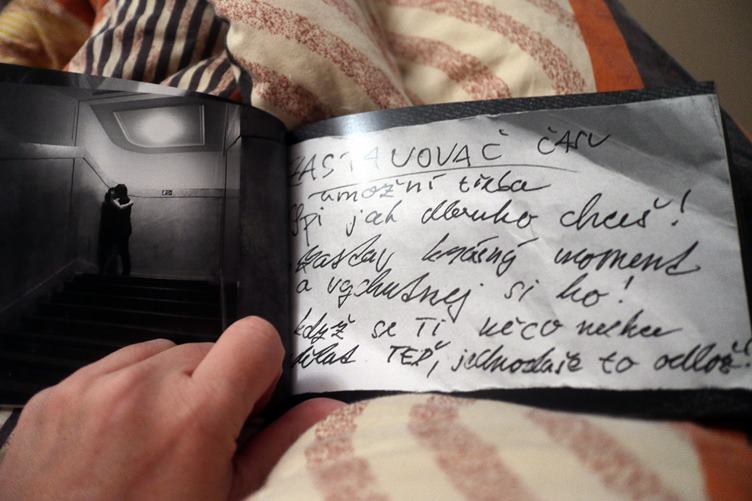 ZASTAVOVAČ ČASU
umožní třeba
Spi jak dlouho chceš!
Zastav krásný moment
a vychutnej si ho!
když se Ti něco nechce
dělat TEĎ, jednoduše to odlož!